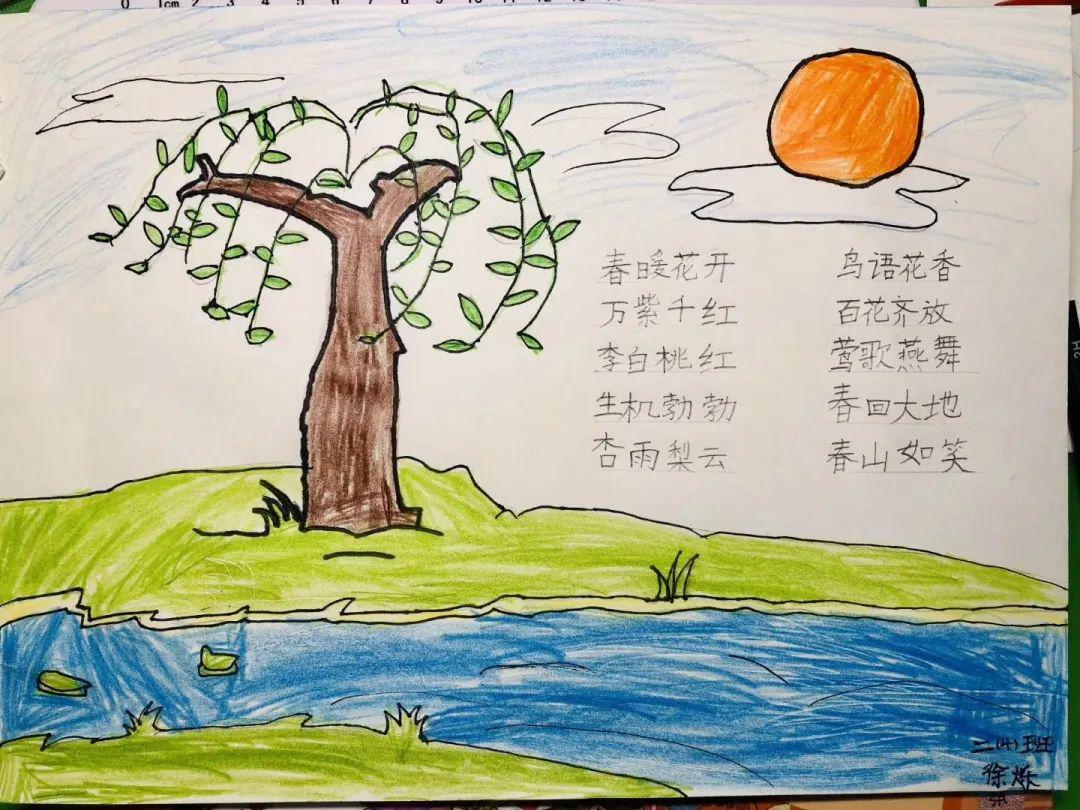 春暖花开 鸟语花香
万紫千红 百花齐放
李白桃红 莺歌燕舞
生机勃勃 春回大地
杏雨梨云 春山如笑
二(4)班
徐烁